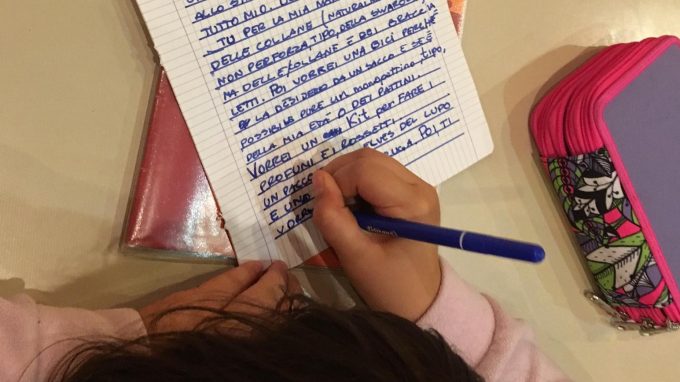 ALLO
TUTTO MIO.
TU PER LA MIA
DELLE COLLANE (NATURAL
NON PER FORZA, TIPO, DELLA SWARO
MA DELLE COLLANE E DEI BRACCIA
LETTI. POI VORREI UNA BICI PERCHÈ
LA DESIDERO DA UN SACCO E SE È
POSSIBILE PURE UN monopattino, tipo,
DELLA MIA ETÀ O DEI PATTINI.
VORREI UN Kit per FARE I
PROFUMI E I ROSSETTI.
UN PASS ELVES DEL LUPO
E UNA POI TI
VORR